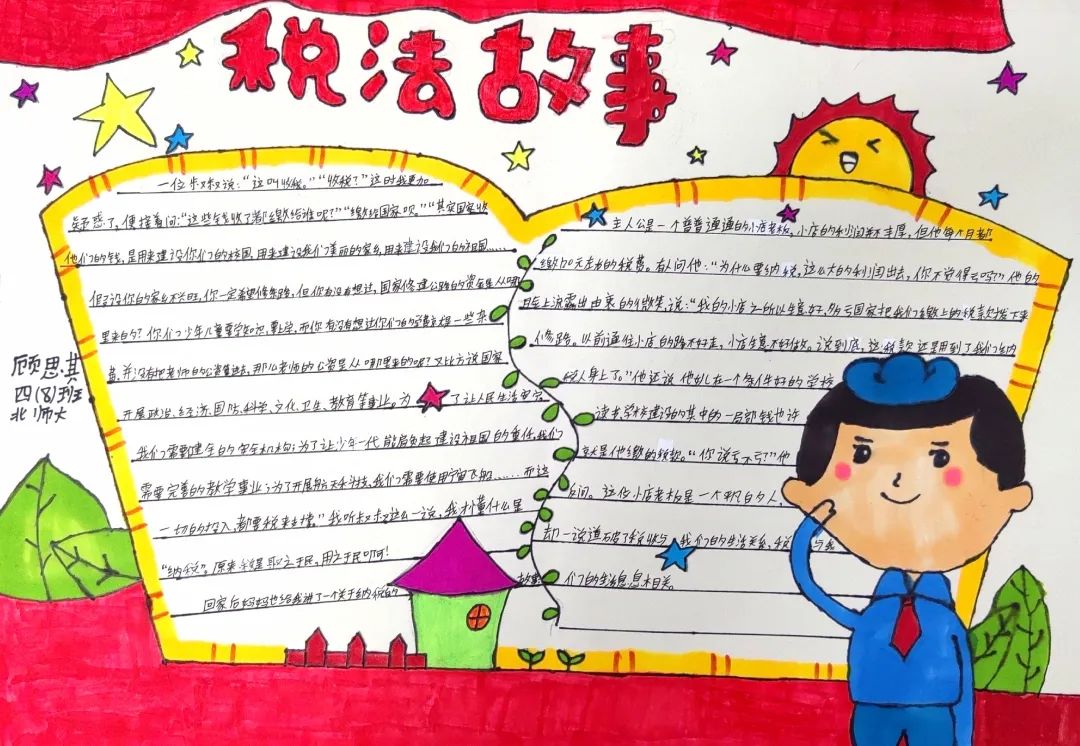 税法故事
一位叔叔说：“这叫收税。”“收税？”这时我更加
疑惑了，便接着问：“这些钱收了都缴给谁呢？”“缴给国家呗。”“其实国家收
他们的钱，是用来建设你们的校园，用来建设我们美丽的家乡，用来建设我们的祖国……
假设你的家乡不兴旺，你一定希望修条路，但你有没有想过，国家修建公路的资金是从哪
里来的？你们少年儿童要学知识，要上学，而你有没有想过你们的学费主是一些杂
费，并没有把老师的工资算进去，那么老师的工资是从哪里来的呢？又比方说国家
开展政治、经济、国防、科学、文化、卫生、教育等事业。为了让人民生活安定
我们需要建全的安全机构；为了让少年一代能肩负起建设祖国的重任，我们
需要完善的教学事业；为了开展航天科技，我们需要使用宇宙飞船……而这
一切的投入，都要税来支撑。”我听叔叔这么一说，我才懂什么是
“纳税”。原来税是取之于民，用之于民的呵！
回家后妈妈也给我讲了一个关于纳税的故事
主人公是一个普普通通的小店老板，小店的利润并不丰厚，但他每个月都
缴加元左右的税费。有人问他：“为什么要纳税，这么大的利润出去，你不觉得亏吗？”他的
脸上流露出由衷的微笑，说：“我的小店之所以生意好，多亏国家把我们缴上的税款拨下来
修路。以前通往小店的路不好走，小店生意不好做。说到底，这税款还是用到了我们纳
税人身上了。”他还说他女儿在一个条件好的学校
读书，学校建设的其中的一部分钱也许
就是他缴的税款。“你说亏不亏？”他
反问。这位小店老板是一个平凡的人，
却一说道破了税收与我们的生活关系，税与我
们的生活息息相关。
顾思淇
四(8)班
北师大